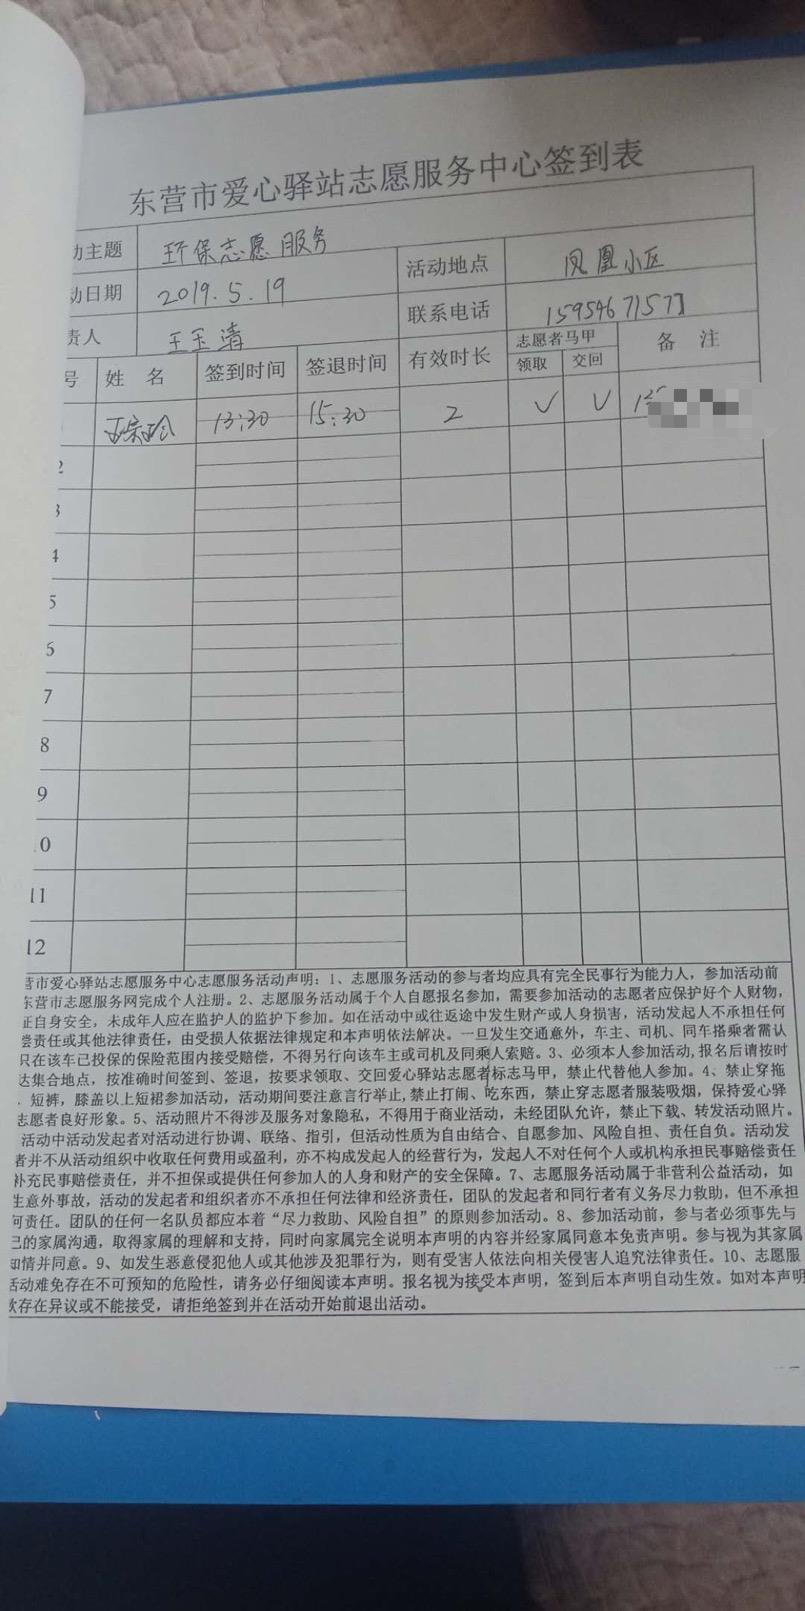 东营市爱心驿站志愿服务中心签到表
动主题 环保志愿服务
动日期 2019.5.19 活动地点 凤凰小区
责人 王玉清 联系电话 15954671573
号 姓 名 签到时间 签退时间 有效时长 志愿者马甲 备 注
领取 交回
13:30 15:30 2 √ √
2
3
4
5
6
7
8
9
10
11
12
营市爱心驿站志愿服务中心志愿服务活动声明：1、志愿服务活动的参与者均应具有完全民事行为能力人，参加活动前
东营市志愿服务网完成个人注册。2、志愿服务活动属于个人自愿报名参加，需要参加活动的志愿者应保护好个人财物，
证自身安全，未成年人应在监护人的监护下参加。如在活动中或往返途中发生财产或人身损害，活动发起人不承担任何
偿责任或其他法律责任，由受损人依据法律规定和本声明依法解决。一旦发生交通意外，车主、司机、同车搭乘者需认
只在该车已投保的保险范围内接受赔偿，不得另行向该车主或司机及同乘人索赔。3、必须本人参加活动,报名后请按时
达集合地点，按准确时间签到、签退，按要求领取、交回爱心驿站志愿者标志马甲，禁止代替他人参加。4、禁止穿拖
、短裤，膝盖以上短裙参加活动，活动期间要注意言行举止,禁止打闹、吃东西，禁止穿志愿者服装吸烟，保持爱心驿
志愿者良好形象。5、活动照片不得涉及服务对象隐私，不得用于商业活动，未经团队允许，禁止下载、转发活动照片。
活动中活动发起者对活动进行协调、联络、指引，但活动性质为自由结合、自愿参加、风险自担、责任自负。活动发
者并不从活动组织中收取任何费用或盈利，亦不构成发起人的经营行为，发起人不对任何个人或机构承担民事赔偿责任
补充民事赔偿责任，并不担保或提供任何参加人的人身和财产的安全保障。7、志愿服务活动属于非营利公益活动，如
生意外事故，活动的发起者和组织者亦不承担任何法律和经济责任，团队的发起者和同行者有义务尽力救助，但不承担
何责任。团队的任何一名队员都应本着“尽力救助、风险自担”的原则参加活动。8、参加活动前，参与者必须事先与
己的家属沟通，取得家属的理解和支持，同时向家属完全说明本声明的内容并经家属同意本免责声明。参与视为其家属
知情并同意。9、如发生恶意侵犯他人或其他涉及犯罪行为，则有受害人依法向相关侵害人追究法律责任。10、志愿服
活动难免存在不可预知的危险性，请务必仔细阅读本声明。报名视为接受本声明，签到后本声明自动生效。如对本声明
款存在异议或不能接受，请拒绝签到并在活动开始前退出活动。